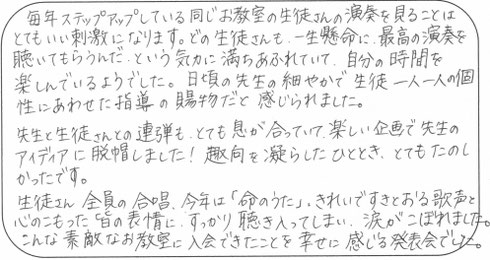 毎年ステップアップしている同じお教室の生徒さんの演奏を見ることは
とてもいい刺激になります。どの生徒さんも、一生懸命に、最高の演奏を
聴いてもらうんだ、という気力に満ちあふれていて、自分の時間を
楽しんでいるようでした。日頃の先生の細やかで生徒一人一人の個
性にあわせた指導の賜物だと感じられました。
先生と生徒さんとの連弾も、とても息が合っていて、楽しい企画で先生の
アイディアに脱帽しました!趣向を凝らしたひととき、とてもたのし
かったです。
生徒さん全員の合唱、今年は「命のうた」、きれいですきとおる歌声と
心のこもった皆の表情に、すっかり聴き入ってしまい、涙がこぼれました。
こんな素敵なお教室に入会できたことを幸せに感じる発表会でした。